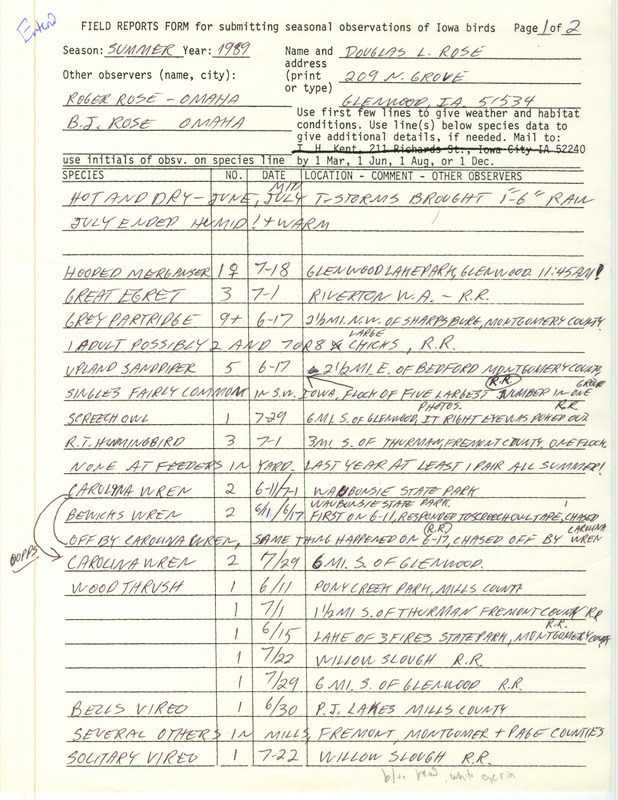 Entered
FIELD REPORTS FORM for submitting seasonal observations of Iowa birds Page 1 of 2
Season: SUMMER Year: 1989
Name and address (print or type)
DOUGLAS L. ROSE
209 N. GROVE
GLENWOOD, IA. 51534
Other observers (name, city):
ROGER ROSE - OMAHA
B.J. ROSE OMAHA
Use first few lines to give weather and habitat
conditions. Use line(s) below species data to
give additional details, if needed. Mail to:
T. H. Kent, 211 Richards St., Iowa City IA 52240
use initials of obsv. on species line by 1 Mar, 1 Jun, 1 Aug, or 1 Dec.
SPECIES NO. DATE LOCATION - COMMENT - OTHER OBSERVERS
HOT AND DRY - JUNE, MID JULY T-STORMS BROUGHT 1"-6" RAIN
JULY ENDED HUMID! + WARM
HOODED MERGANSER 1♀ 7-18 GLENWOOD LAKE PARK, GLENWOOD 11:45AM!
GREAT EGRET 3 7-1 RIVERTON W.A. - R.R.
GREY PARTRIDGE 9+ 6-17 2½ MI. N.W. OF SHARPSBURG, MONTGOMERY COUNTY
1 ADULT POSSIBLY 2 AND 7 OR 8 LARGE CHICKS, R.R.
UPLAND SANDPIPER 5 6-17 2½ MI E. OF BEDFORD MONTGOMERY COUNTY
R.R.
SINGLES FAIRLY COMMON IN S.W. IOWA, FLOCK OF FIVE LARGEST NUMBER IN ONE GROUP
PHOTOS. R.R
SCREECH OWL 1 7-29 6 MI. S. OF GLENWOOD, IT RIGHT EYE WAS POKED OUT
R.T. HUMMINGBIRD 3 7-1 3 MI. S. OF THURMAN, FREMONT COUNTY ONE FLOCK
NONE AT FEEDERS IN YARD. LAST YEAR AT LEAST 1 PAIR ALL SUMMER!
CAROLINA WREN 2 6-11/7-1 WAUBONSIE STATE PARK
WAUBONSIE STATE PARK
BEWICKS WREN 2 6/11 6/17 FIRST ON 6-11, RESPONDED TO SCREECH OWL TAPE, CHASED
(R.R) CAROLINA
OFF BY CAROLINA WREN, SAME THING HAPPENED ON 6-17, CHASED OFF BY WREN
OOPPS
CAROLINA WREN 2 7/29 6 MI. S. OF GLENWOOD.
WOOD THRUSH 1 6/11 PONY CREEK PARK, MILLS COUNTY
1 7/1 1½ MI S. OF THURMAN FREMONT COUNTY RR
R.R.
1 6/15 LAKE OF 3 FIRES STATE PARK, MONTGOMERY COUNTY
1 7/22 WILLOW SLOUGH R.R.
1 7/29 6 MI. S. OF GLENWOOD R.R.
BELLS VIREO 1 6/30 P.J. LAKES MILLS COUNTY
SEVERAL OTHERS IN MILLS, FREMONT, MONTGOMER + PAGE COUNTIES
SOLITARY VIREO 1 7-22 WILLOW SLOUGH R.R.
head, white